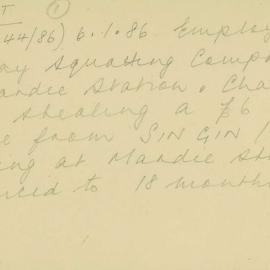 T ①
44/86) 6.1.86 Employ
ay Squatting Comp
ardie Station. Cha
stealing a £6
e from SIN GIN
ing at Mardie St
nced to 18 month